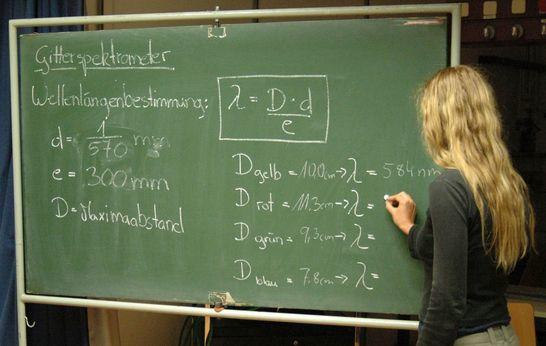 Gitterspektrometer
Wellenlängenbestimmung:
λ = D·d/e
d = 1/570 mm
e = 300 mm
D = Maximaabstand
D gelb = 10,0cm → λ = 584 nm
D rot = 11,3cm → λ =
D grün = 9,3cm → λ =
D blau = 7,8cm → λ =